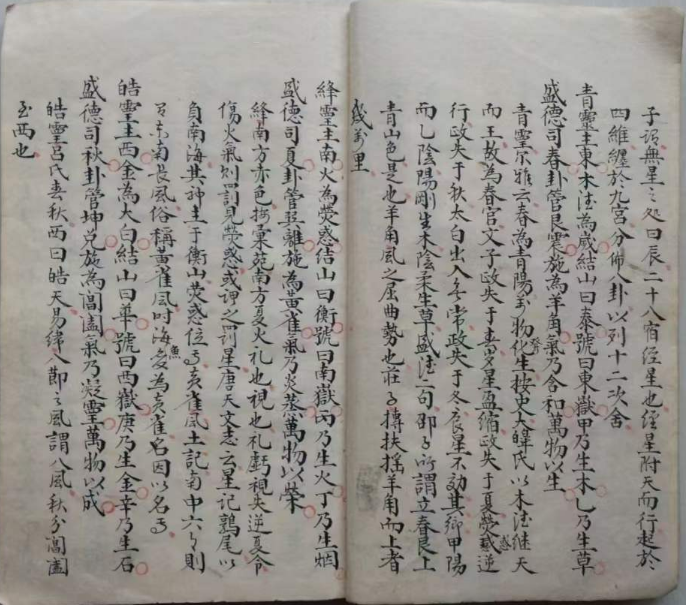 子謂無星之処曰辰二十八宿經星也經星附天而行起於
四維纏於九宮分佈八卦以列十二次舍
青靈主東木德為歲結山曰泰號曰東嶽甲乃生木乙乃生草
盛德司春卦管艮震施為羊角氣乃含和萬物以生
青靈尔雅云春為青陽萬物化生發按史大皞氏以木德継天
而王故為春官文子政失于春歲星盈縮政失于夏熒惑逆
行政失于秋太白出入無常政失于冬辰星不効其鄉甲陽
而乙陰陽剛生木陰柔生草盛德二句邵子所謂立春艮上
青山色是也羊角風之屈曲勢也莊子摶扶搖羊角而上者
幾萬里
絳靈主南火為熒惑結山曰衡號曰南嶽丙乃生火丁乃生烟
盛德司夏卦管巽離施為黃雀氣乃炎蒸萬物以榮
絳南方赤色按彙苑南方夏火礼也視也礼虧視失逆夏令
傷火氣則罰見熒惑或謂之罰星唐天文志云星記鶉尾以
負南海其神主于衡山熒惑位焉黃雀風土記南中六月則
有東南長風俗稱黃雀風时海魚変為黃雀名因以名焉
皓靈主西金為太白結山曰華號曰西嶽庚乃生金辛乃生石
盛德司秋卦管坤兌施為閶闔氣乃凝霊萬物以成
皓靈呂氏春秋西曰皓天易緯八節之風謂八風秋分閶闔
至西也